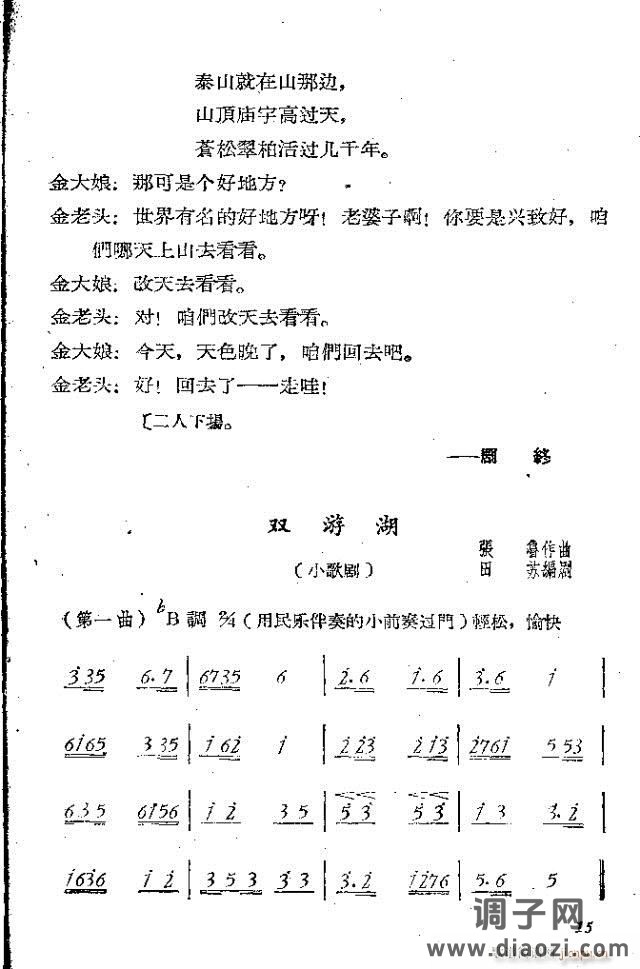 泰山就在山那边，
山頂庙宇高过天，
蒼松翠柏活过几千年。
金大娘：那可是个好地方？
金老头：世界有名的好地方呀！老婆子啊！你要是兴致好，咱
們哪天上山去看看。
金大娘：改天去看看。
金老头：对！咱們改天去看看。
金大娘：今天，天色晚了，咱們回去吧。
金老头：好！回去了——走哇！
〔二人下場。
——剧 終
双 游 湖
（小歌剧）
張 魯作曲
田 苏編剧
（第一曲）♭B調 2/4（用民乐伴奏的小前奏过門）輕松，愉快
3 35 6·7 | 6735 6 | 2·6 1·6 | 3·6 1 |
6165 3 35 | 1 62 1 | 2 23 2 13 | 2761 5 53 |
6 35 6156 | 1 2 3 5 | 5 3 5 3 | 1 3 3·2 |
1636 1 2 | 3 5 3 3 3 | 3·2 1276 | 5·6 5 ‖
15
调子网
www.diaozi.com